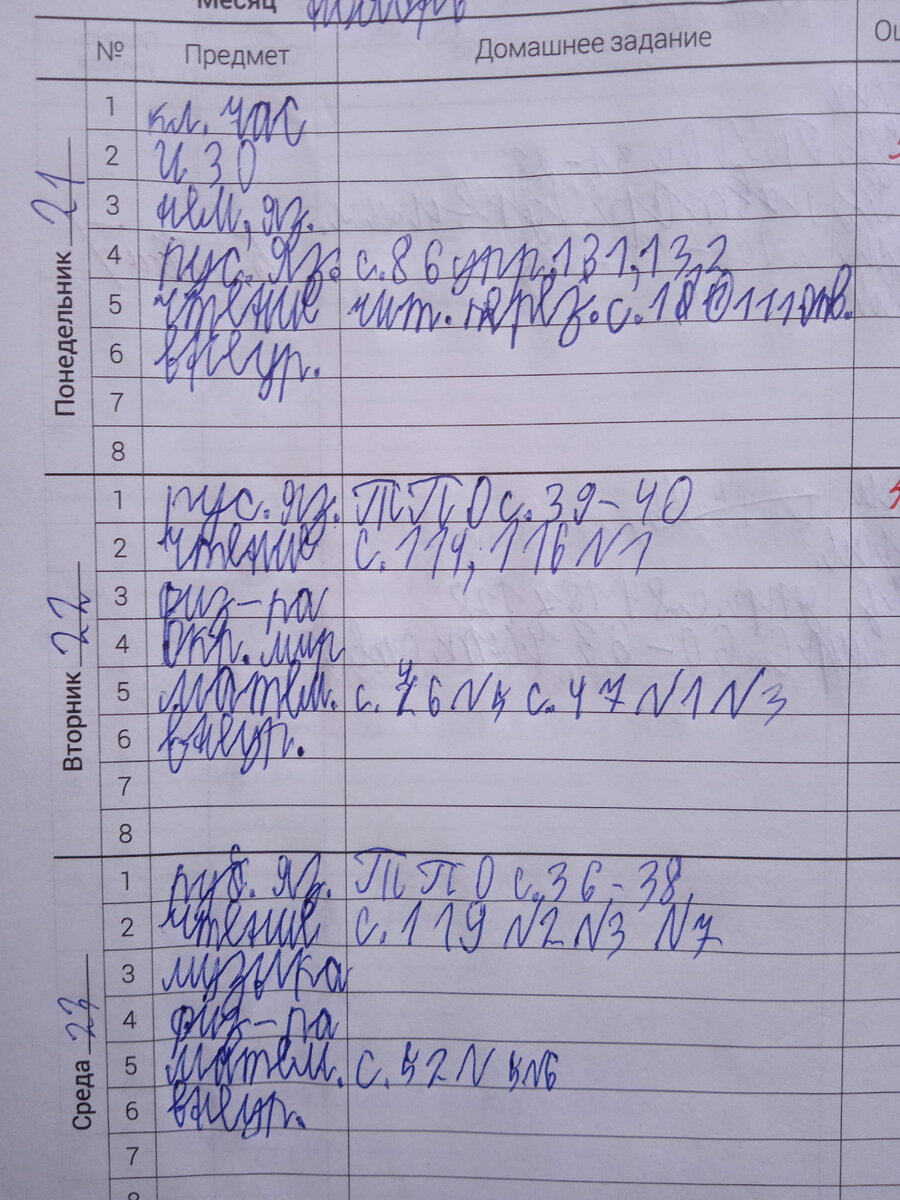 Месяц
№ Предмет Домашнее задание Оц
Понедельник 21
1 кл. час
2 ИЗО
3 нем. яз.
4 рус. яз. с.86 упр.131,132
5 чтение чит. с.110 111 отв.
6 внеур.
7
8
Вторник 22
1 рус. яз. ТПО с.39-40
2 чтение с.114, 116 N1
3 физ-ра
4 Окр. мир
5 матем. с. 46 N5 с.47 N1 N3
6 внеур.
7
8
Среда 23
1 рус. яз. ТПО с.36-38.
2 чтение с.119 N2 N3 N7
3 музыка
4 физ-ра
5 матем. с.52 N 5 N6
6 внеур.
7
8